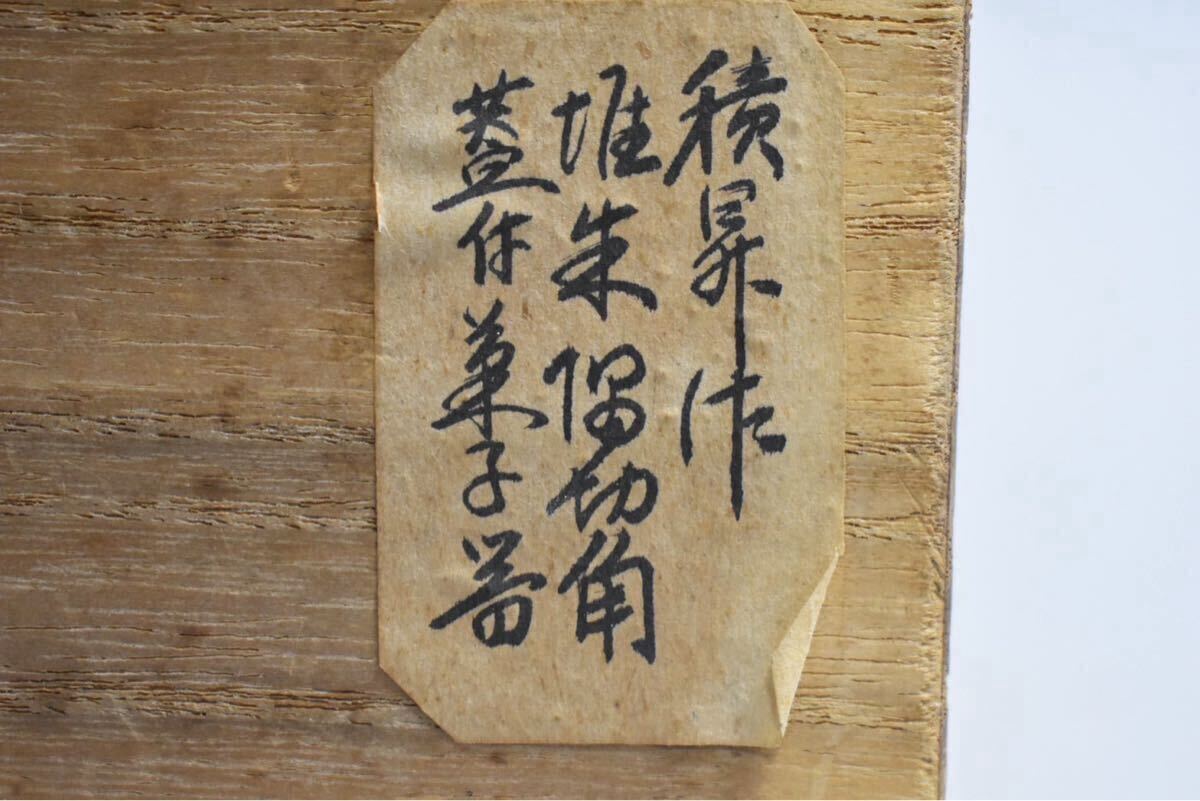 積昇作
堆朱隅切角
蓋付菓子器